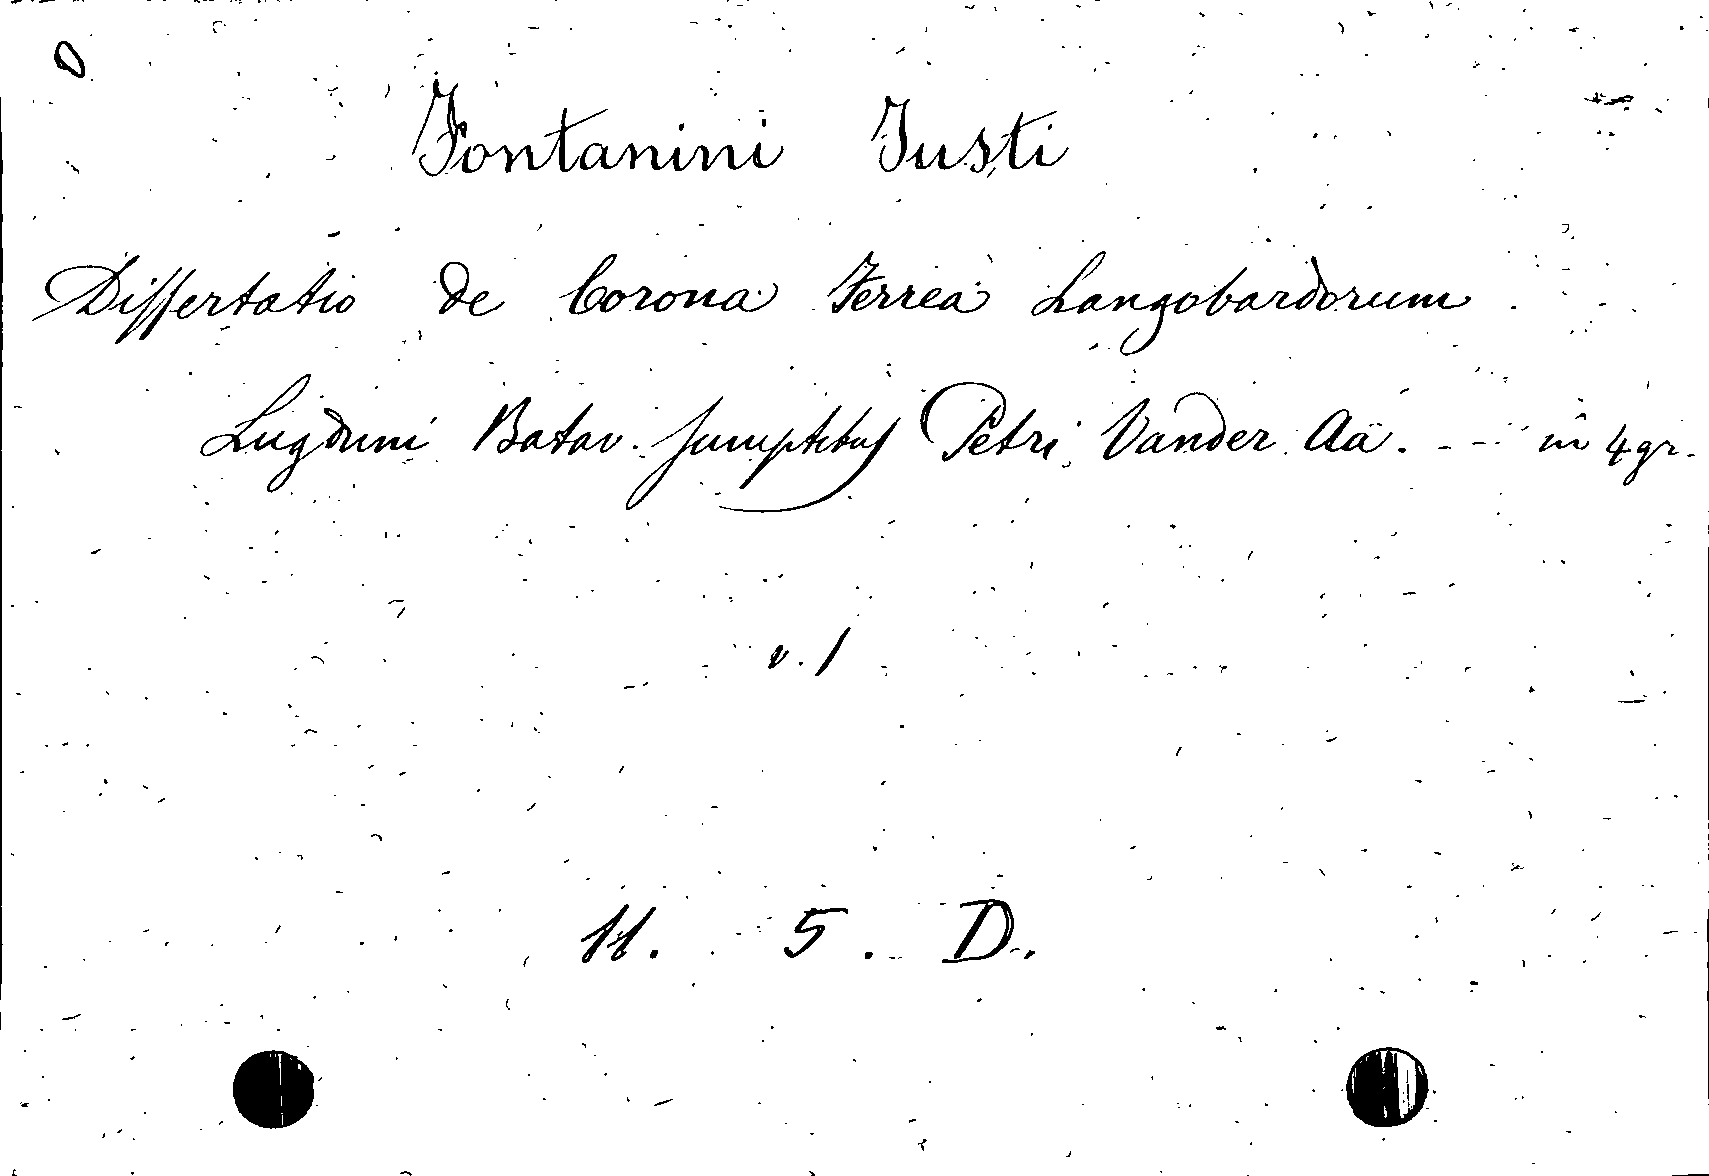 0
Fontanini Justi
Dissertatio de Corona Ferrea Langobardorum
Lugduni Batav. sumptibus Petri Vander Aa. - - - in 4 gr.
v. 1
11. 5. D.